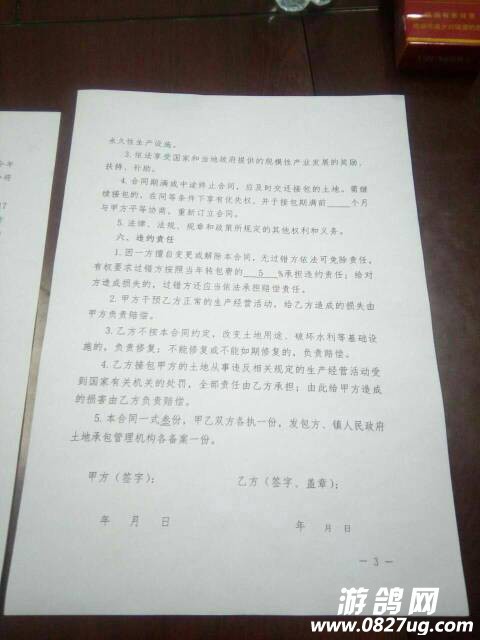 永久性生产设施。
3.依法享受国家和当地政府提供的规模性产业发展的奖励、
扶持、补助。
4.合同期满或中途终止合同，应及时交还接包的土地。需继
续接包的，在同等条件下享有优先权，并于接包期满前____个月
与甲方平等协商，重新订立合同。
5.法律、法规、规章和政策所规定的其他权利和义务。
六、违约责任
1.因一方擅自变更或解除本合同，无过错方依法可免除责任，
有权要求过错方按照当年转包费的__5__%承担违约责任；给对
方造成损失的，过错方还应当依法承担赔偿责任。
2.甲方干预乙方正常的生产经营活动，给乙方造成的损失由
甲方负责赔偿。
3.乙方不按本合同约定，改变土地用途、破坏水利等基础设
施的，负责修复；不能修复或不能如期修复的，负责赔偿。
4.乙方接包甲方的土地从事违反相关规定的生产经营活动受
到国家有关机关的处罚，全部责任由乙方承担；由此给甲方造成
的损害由乙方负责赔偿。
5.本合同一式叁份，甲乙双方各执一份，发包方、镇人民政府
土地承包管理机构各备案一份。
甲方（签字）： 乙方（签字、盖章）：
年 月 日 年 月 日
－3－
游鸽网
www.0827ug.com